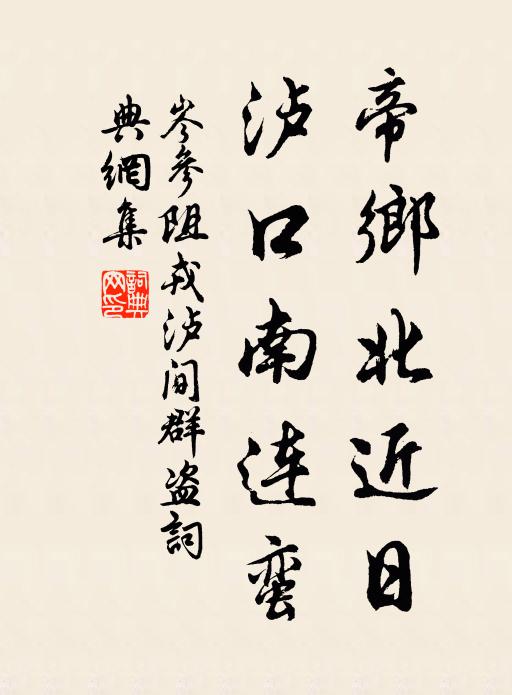 帝鄉北近日
泸口南连蛮
岑參阻戎泸間群盗詞
典網集
詞典网印